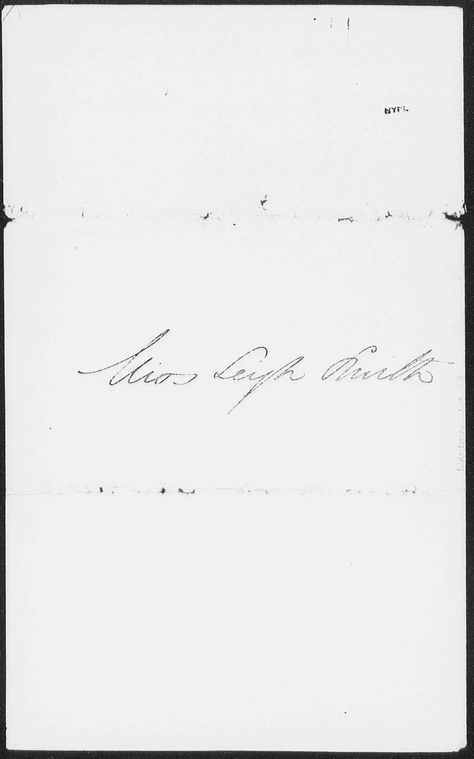 NYPL
Miss Leigh Smith